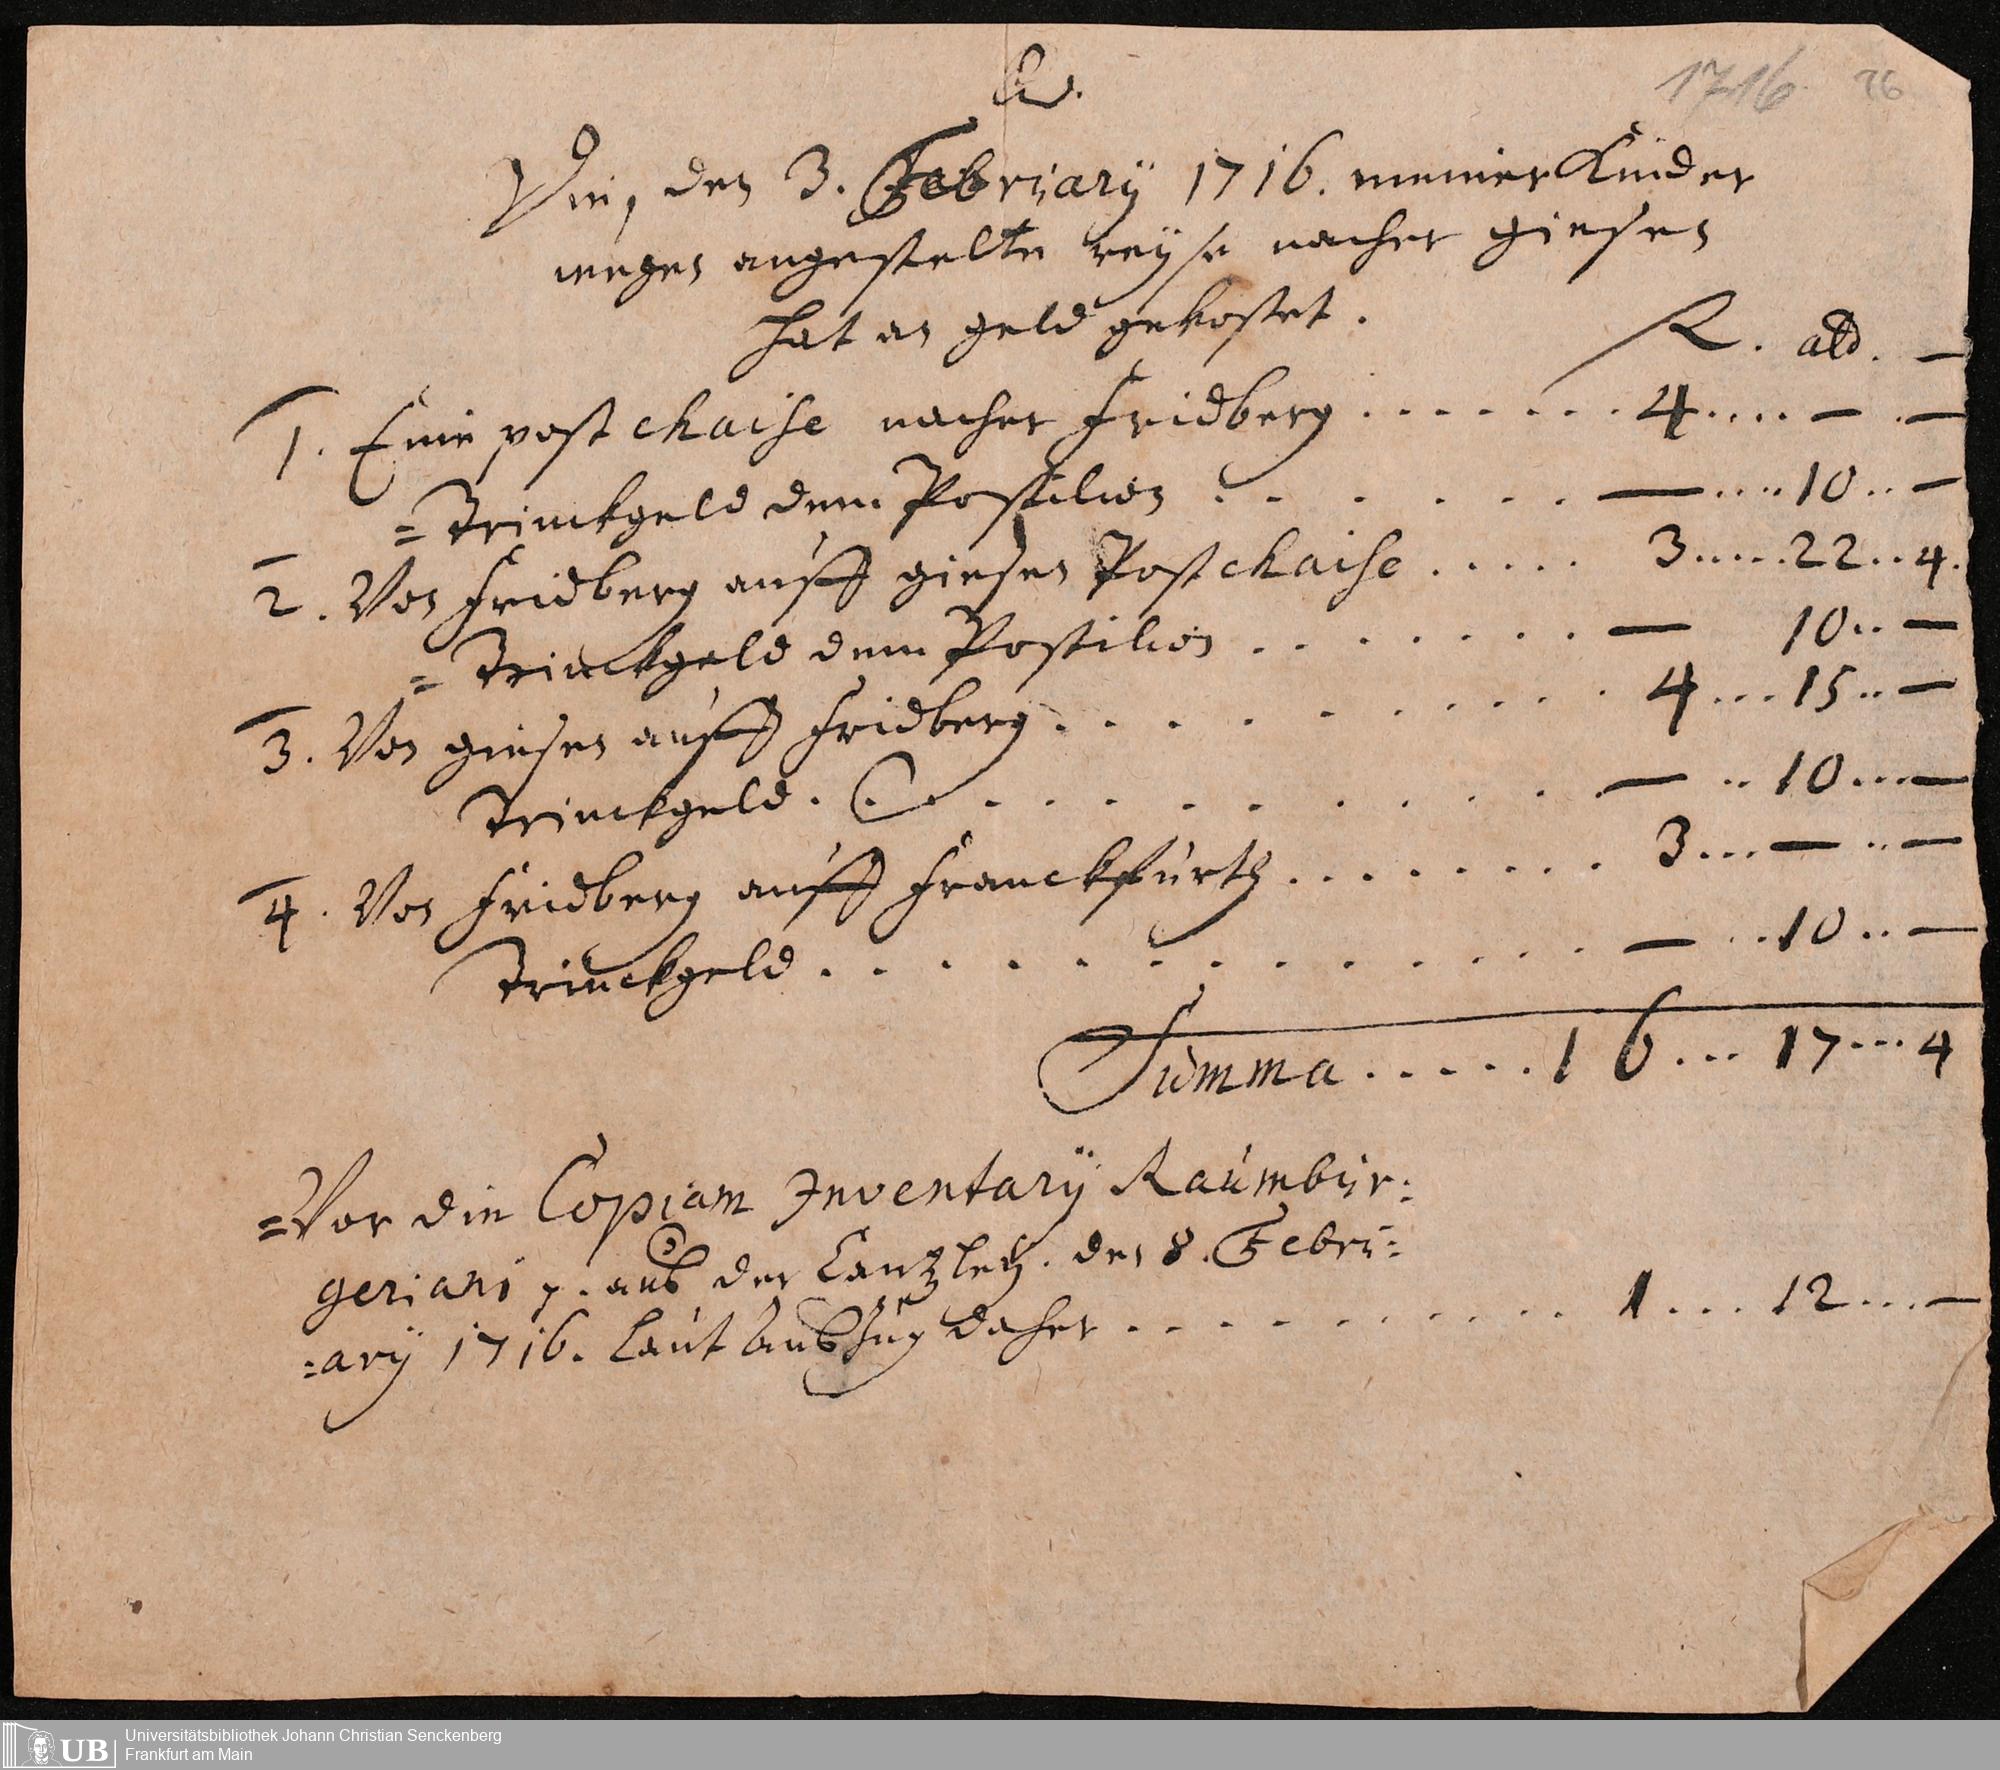 1716. 76
Die, den 3. February 1716. meiner Kinder
wegen angestelte reyse nacher giesen
hat an geld gekostet.
R. alb. —
1. Eine post chaise nacher Fridberg . . . . . . . 4 . . . . — . —
= Trinckgeld dem Postilion . . . . . . — . . . . 10 . . —
2. Von Fridberg auff giesen Post chaise . . . . . 3 . . . . . 22 . . 4.
= Trinckgeld dem Postilion . . . . . . . — 10 . . —
3. Von giesen auff Fridberg . . . . . . . . . . 4 . . . 15 . . —
Trinckgeld . . . . . . . . . . . . — . . 10 . . . —
4. Von Fridberg auff Franckfurth . . . . . . . . 3 . . . — . . —
Trinckgeld . . . . . . . . . . . . . — . . . 10 . . —
Summa . . . . . 16 . . . 17 . . . 4
= Vor die Copiam Inventarÿ Raumbur:
geriani p. auß der Cantzley. den 8. Febru:
=arÿ 1716. laut außzug daher . . . . . . . . . . . 1 . . . 12 . . . —
UB
Universitätsbibliothek Johann Christian Senckenberg
Frankfurt am Main